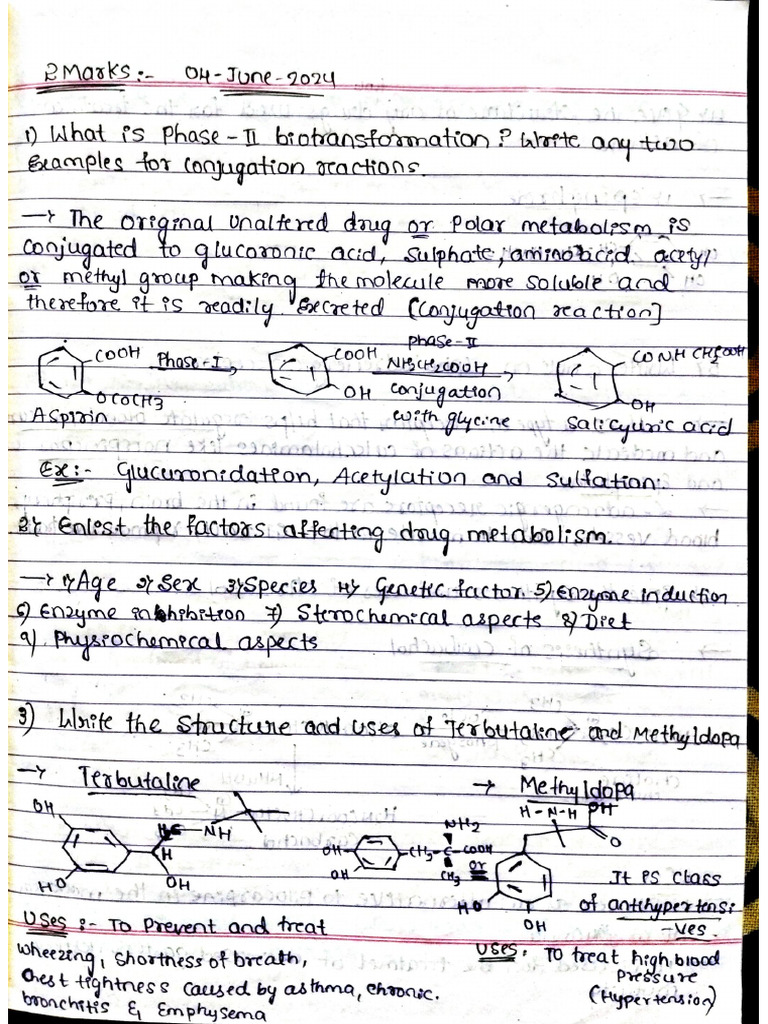 2 Marks :- 04-June-2024
1) What is Phase-II biotransformation? Write any two
Examples for conjugation reactions.
→ The original unaltered drug or Polar metabolism is
conjugated to glucoronic acid, Sulphate, aminoacid, acetyl
or methyl group making the molecule more soluble and
therefore it is readily Excreted (Conjugation reaction]
COOH Phase-I COOH phase-II NH2CH2COOH CONH CH2COOH
OCOCH3 OH conjugation OH
Aspirin with glycine Salicyuric acid
Ex:- Glucuronidation, Acetylation and Sulfation.
2) Enlist the factors affecting drug metabolism.
→ 1) Age 2) Sex 3) Species 4) Genetic factor 5) Enzyme induction
6) Enzyme inhibition 7) Sterochemical aspects 8) Diet
9) Physiochemical aspects
3) Write the Structure and uses of Terbutaline and Methyldopa
→ Terbutaline → Methyldopa
OH NH H HO OH
NH2 OH CH2-C-COOH OH CH3 or
H-N-H OH O HO OH
It is class
of antihypertensi
-ves.
Uses :- To Prevent and treat
wheezing, Shortness of breath,
Chest tightness caused by asthma, chronic.
bronchitis & Emphysema
Uses. To treat high blood
Pressure
(Hypertension)